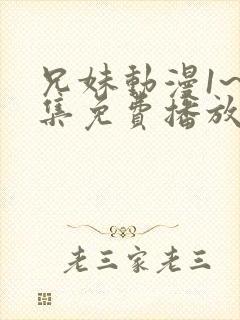 兄妹動漫1~
集免費播放
老三家老三